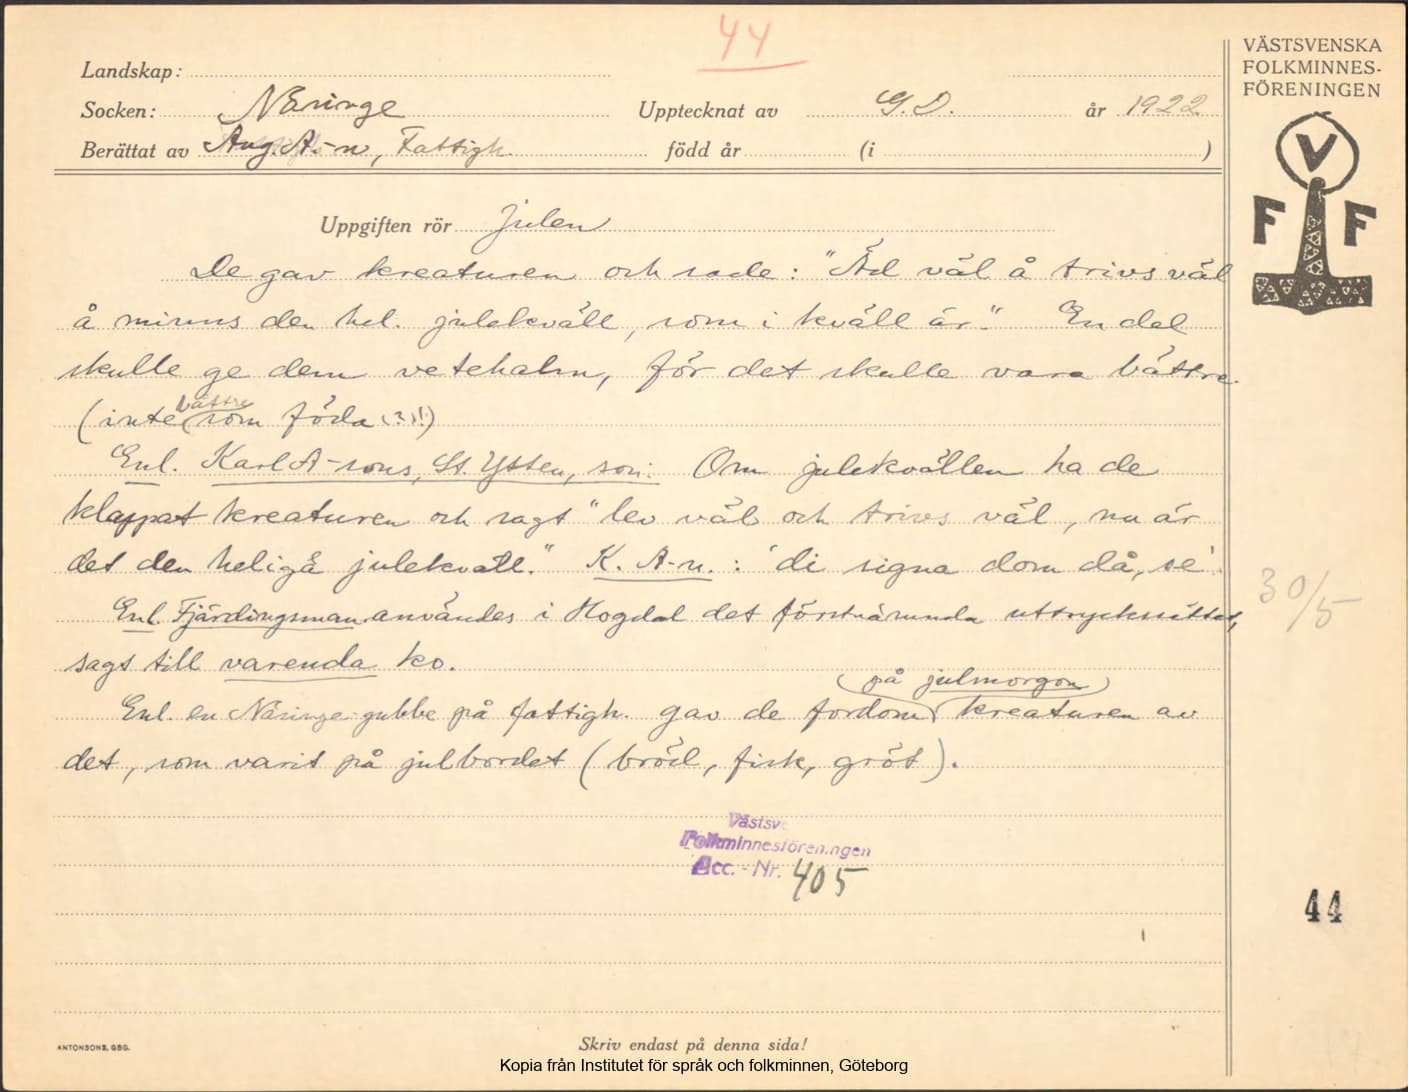 44
VÄSTSVENSKA
FOLKMINNES-
FÖRENINGEN
V
F F
Landskap:
Socken: Näsinge Upptecknat av G. D. år 1922
Berättat av Aug. A-n, Fattigh. född år (i )
Uppgiften rör Julen
De gav kreaturen och sade: "Äd väl å trivs väl
å minns den hel. julekväll, som i kväll är." En del
skulle ge dem vetehalm, för det skulle vara bättre
(inte bättre som föda (?)!)
Enl. Karl A-sons, St. Ytten, son: Om julekvällen ha de
klappat kreaturen och sagt "lev väl och trivs väl, nu är
det den heliga julekväll." K. A-n.: "di signa dom då, se".
Enl. Fjärdingsman användes i Hogdal det förstnämnda uttryckssättet,
sagt till varenda ko.
Enl. en Näsinge-gubbe på fattigh. gav de fordom (på julmorgon) kreaturen av
det, som varit på julbordet (bröd, fisk, gröt).
30/5
Västsv
Folkminnesföreningen
Acc. - Nr. 405
44
ANTONSONS, GBG.
Skriv endast på denna sida!
Kopia från Institutet för språk och folkminnen, Göteborg